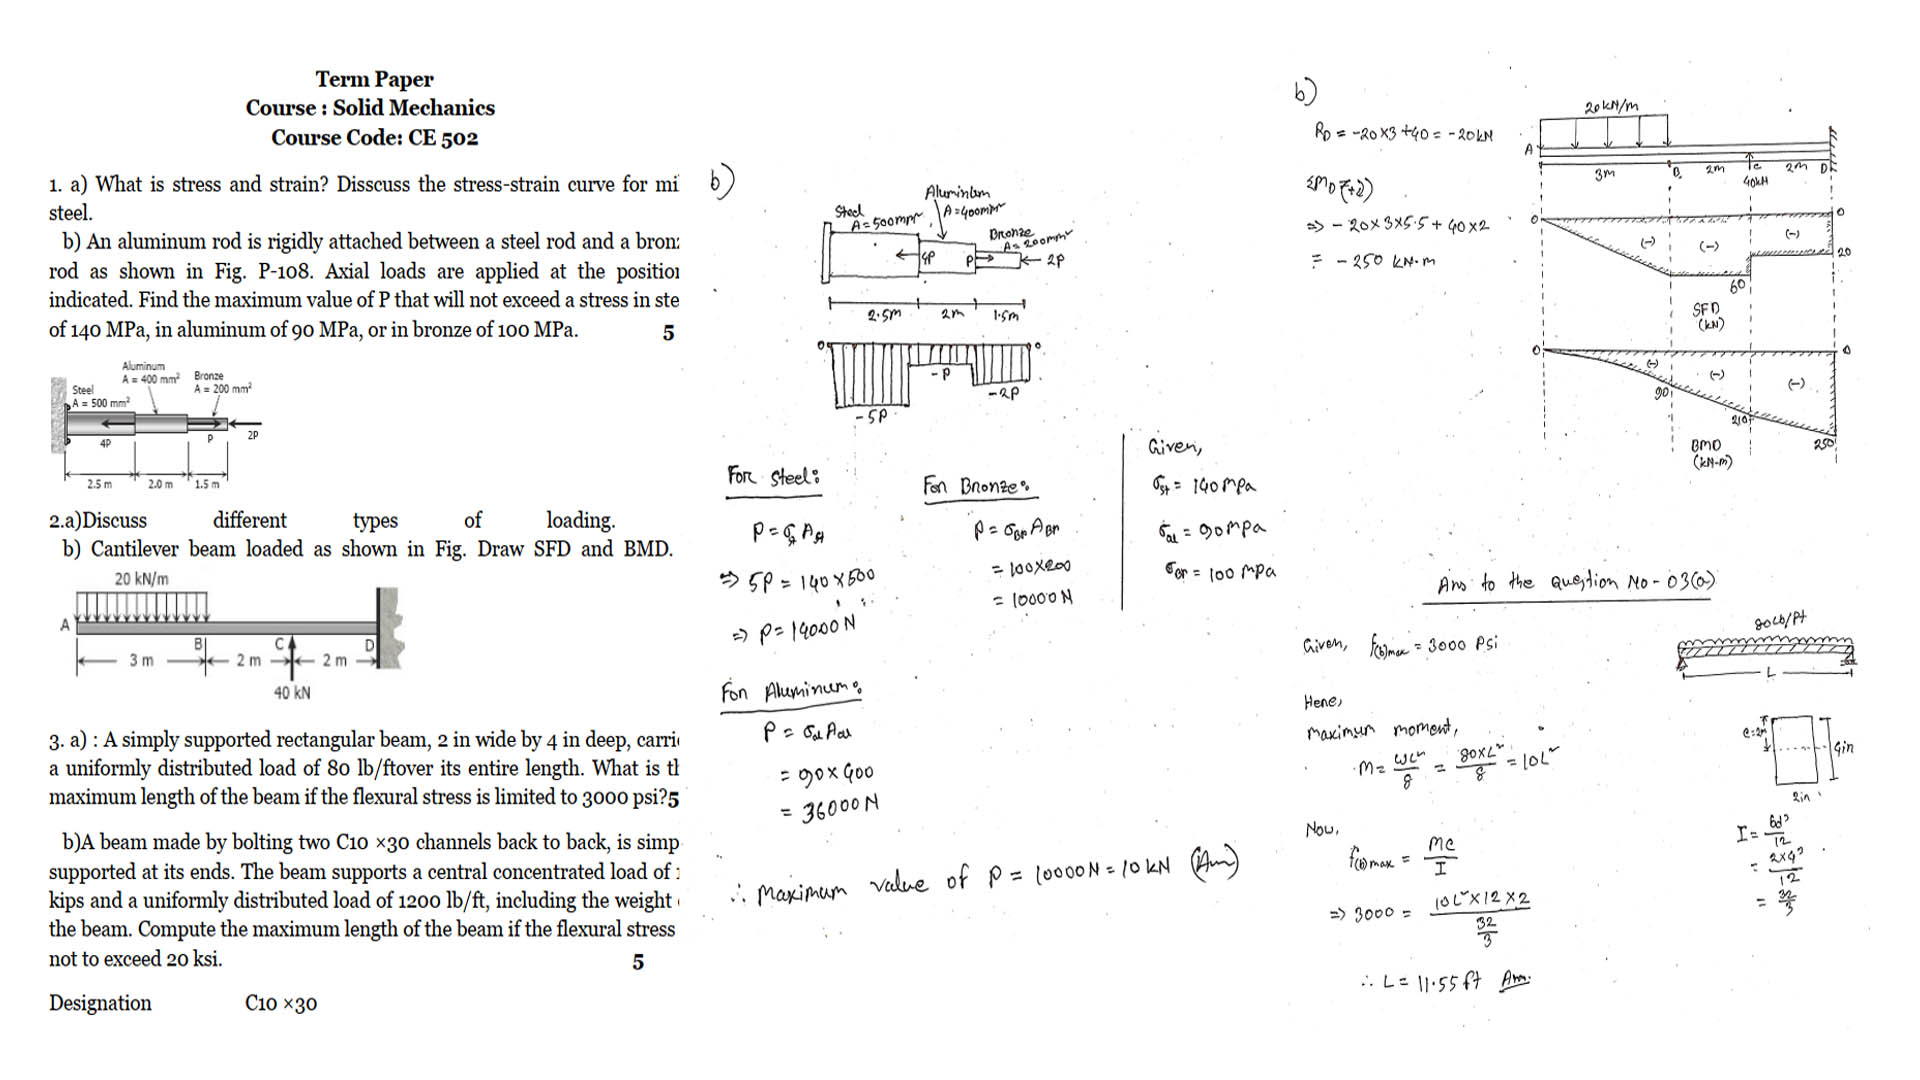 Term Paper
Course : Solid Mechanics
Course Code: CE 502
1. a) What is stress and strain? Disscuss the stress-strain curve for mi
steel.
b) An aluminum rod is rigidly attached between a steel rod and a bron
rod as shown in Fig. P-108. Axial loads are applied at the position
indicated. Find the maximum value of P that will not exceed a stress in ste
of 140 MPa, in aluminum of 90 MPa, or in bronze of 100 MPa. 5
Aluminum
A = 400 mm²
Bronze
A = 200 mm²
Steel
A = 500 mm²
4P
P
2P
2.5 m
2.0 m
1.5 m
2.a)Discuss different types of loading.
b) Cantilever beam loaded as shown in Fig. Draw SFD and BMD.
20 kN/m
A
B
C
D
3 m
2 m
2 m
40 kN
3. a) : A simply supported rectangular beam, 2 in wide by 4 in deep, carri
a uniformly distributed load of 80 lb/ftover its entire length. What is th
maximum length of the beam if the flexural stress is limited to 3000 psi?5
b)A beam made by bolting two C10 ×30 channels back to back, is simp
supported at its ends. The beam supports a central concentrated load of
kips and a uniformly distributed load of 1200 lb/ft, including the weight
the beam. Compute the maximum length of the beam if the flexural stress
not to exceed 20 ksi. 5
Designation C10 ×30
b)
Steel
A=500mm²
Aluminum
A=400mm²
Bronze
A=200mm²
4P
P
2P
2.5m
2m
1.5m
0
0
-P
-2P
-5P
For Steel:
P = σst Ast
⇒ 5P = 140×500
⇒ P = 14000 N
For Bronze:
P = σBr ABr
= 100×200
= 10000 N
Given,
σst = 140 mpa
σal = 90 mpa
σBr = 100 mpa
For Aluminum:
P = σal Aal
= 90×400
= 36000 N
∴ Maximum value of P = 10000N = 10 kN (Ans)
b)
RD = -20×3+40 = -20kN
ΣMD (+)
⇒ -20×3×5.5+40×2
= -250 kN.m
20kN/m
A
3m
B
2m
C
40kN
2m
D
0
0
(-)
(-)
(-)
20
60
SFD
(kN)
0
0
(-)
(-)
(-)
90
210
250
BMD
(kN-m)
Ans to the question No - 03(a)
Given, f(b)max = 3000 Psi
80Lb/ft
L
Here,
maximum moment,
M = wL²/8 = 80×L²/8 = 10L²
c=2in
4in
2in
Now,
f(b)max = Mc/I
⇒ 3000 = 10L²×12×2 / 32/3
∴ L = 11.55 ft Ans.
I = bd³/12
= 2×4³/12
= 32/3